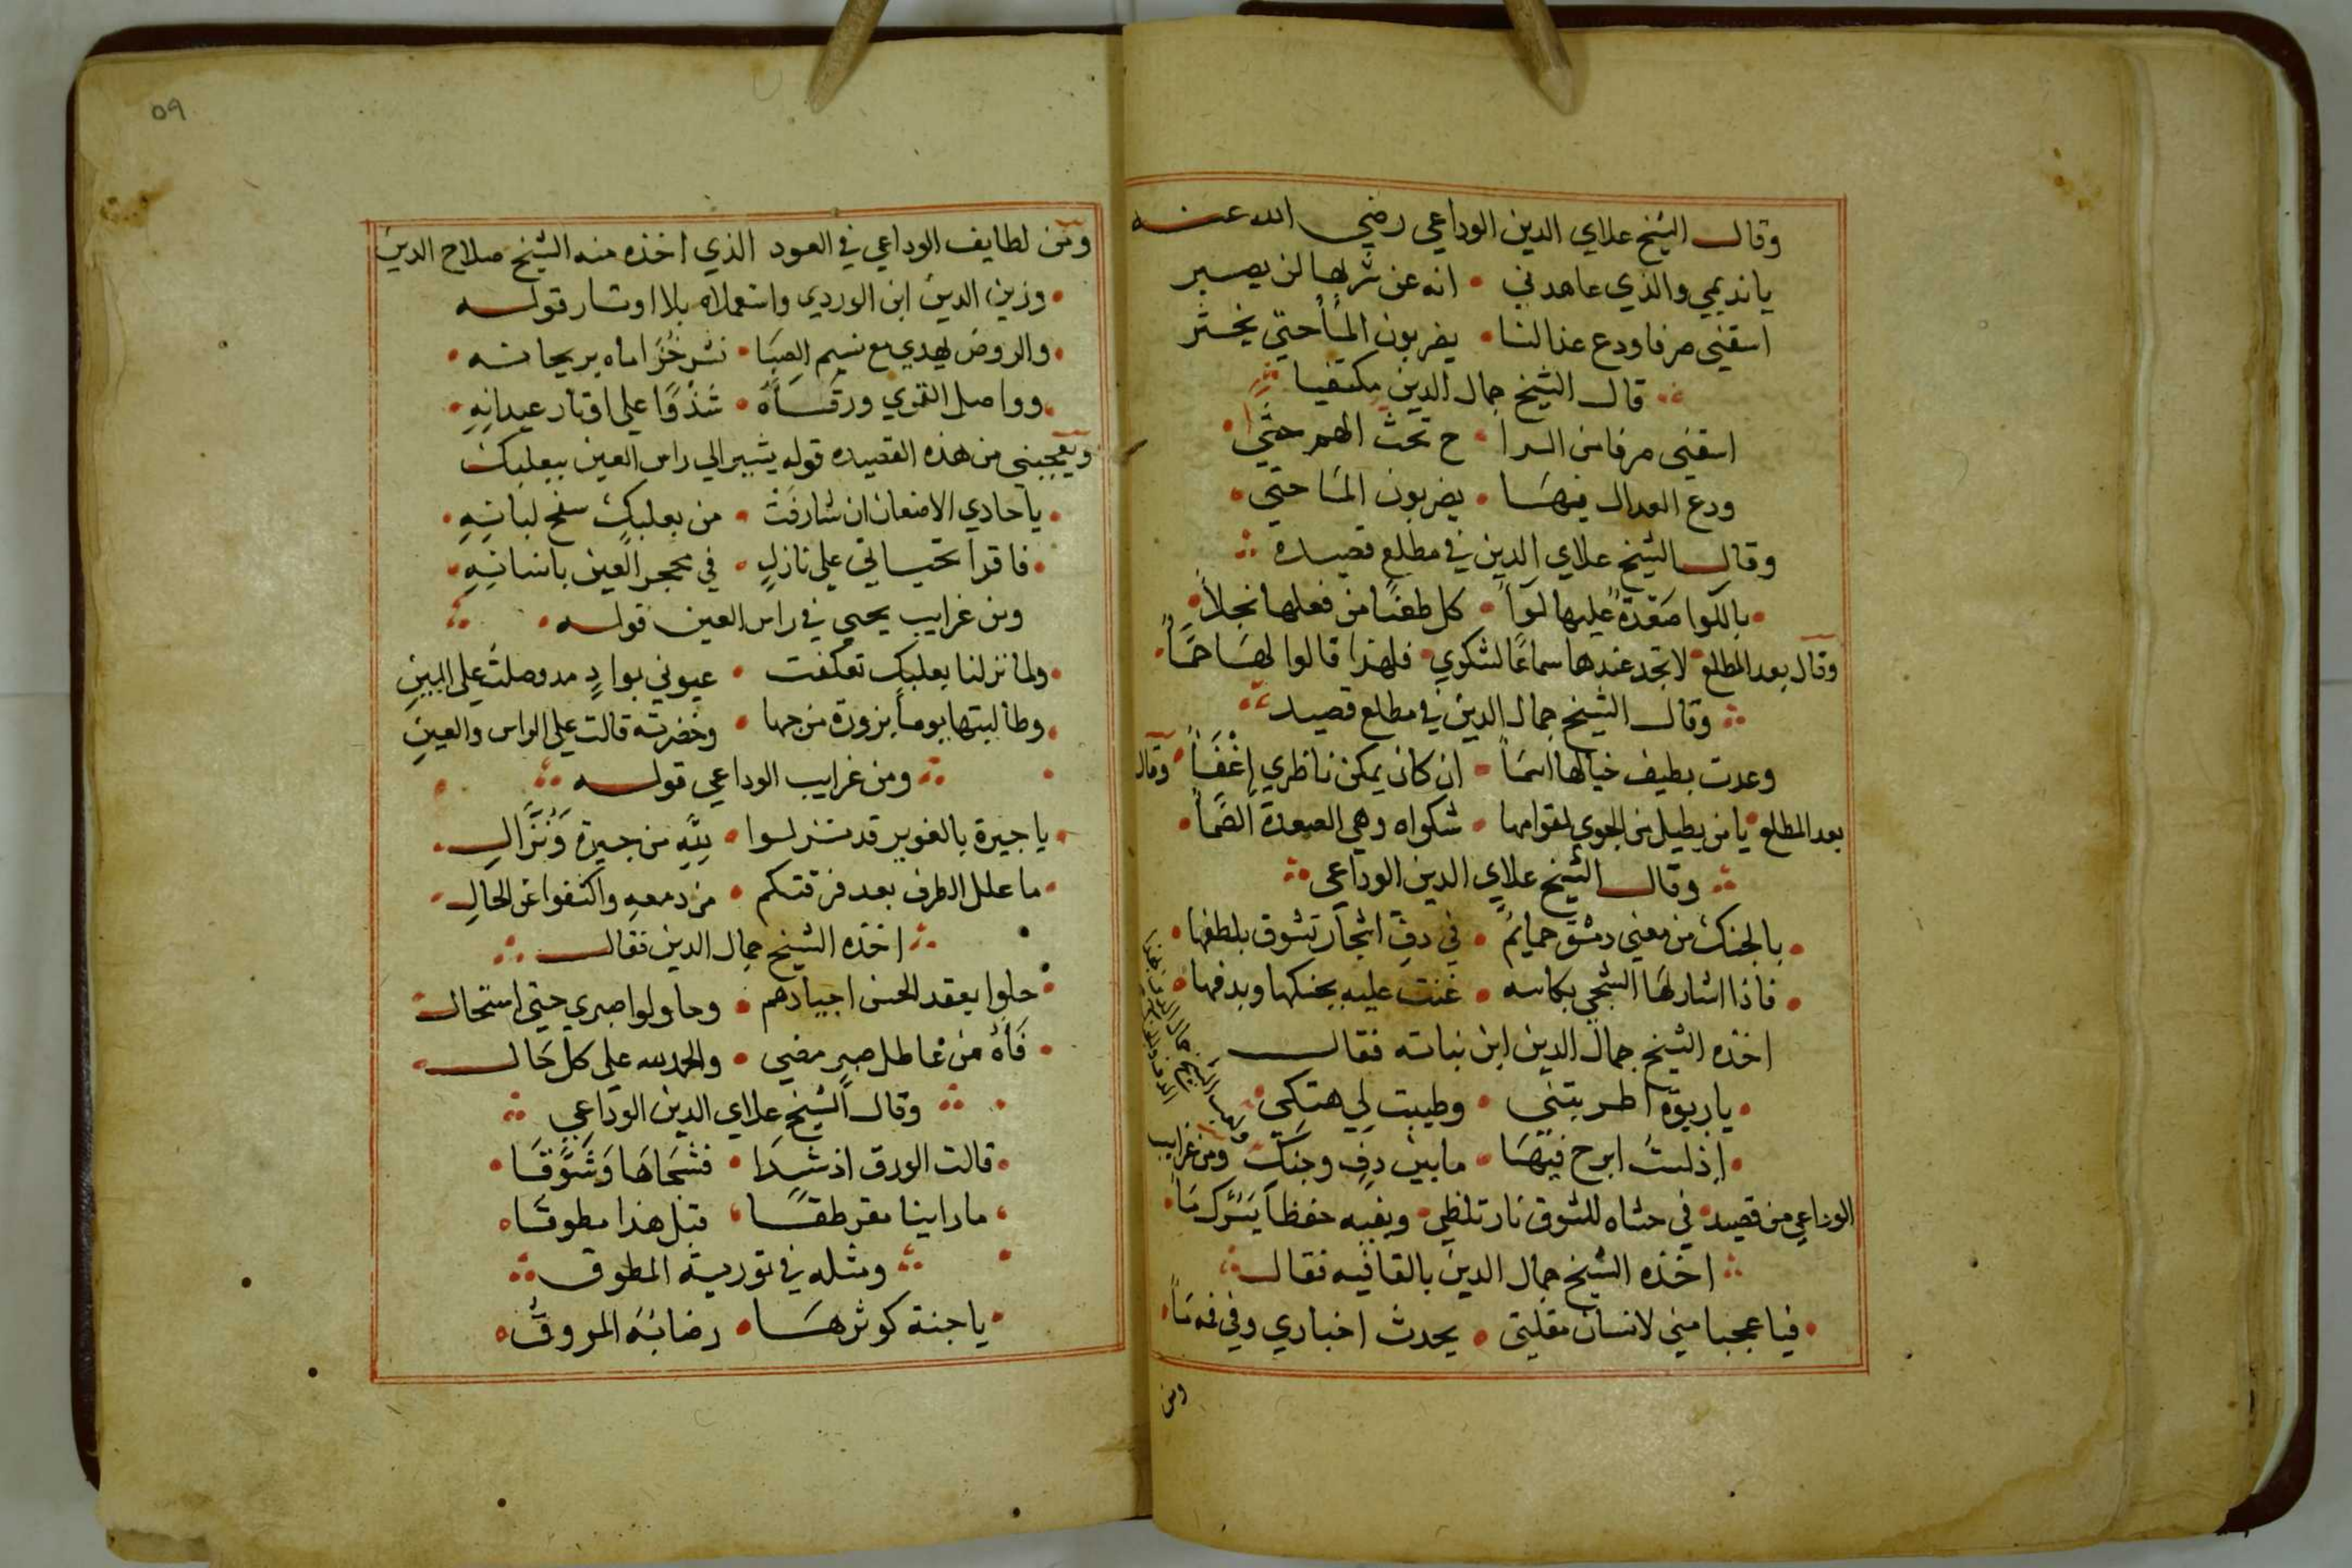 وقال الشيخ علاي الدين الوداعي رضي الله عنه
يا نديمي والذي عاهدني • انه عن شربها لن يصبر
اسقني صرفا ودع عذالنا • يضربون المأ حتي يخثر
قال الشيخ جمال الدين مكتفيا
اسقني صرفا من الرا • ح تحث الهم حثي
ودع العدال فيها • يضربون الما حتي
وقال الشيخ علاي الدين في مطلع قصيده
بالكوا صعدة عليها لوآ • كل طعنا من فعلها نجلا
وقال بعد المطلع لا تجد عندها سماعا لشكوي • فلهذا قالوا لها صما
وقال الشيخ جمال الدين في مطلع قصيد
وعدت بطيف خيالها اسما • ان كان يمكن ناظري اغفا • وقال
بعد المطلع • يا من يطيل من الجوي لقوامها • شكواه وهي الصعدة الصما
وقال الشيخ علاي الدين الوداعي
بالجنك من مغني دمشق حمايم • في دف اشجار تشوق بلطفها
فاذا اشار لها الشجي بكاسه • غنت عليه بجنكها وبدفها
اخذه الشيخ جمال الدين ابن نباته فقال
يا ربوة اطربتني • وطيبت لي هتكي
اذ لست ابرح فيها • ما بين دف وجنك ومن غرايب
الوداعي من قصيد • في حشاه للشوق نار تلظي • وبفيه حفظا يترك ما
اخذه الشيخ جمال الدين بالقافيه فقال
فيا عجبا مني لانسان مقلتي • يحدث اخباري وفي فه ما
ومن
٥٩
ومن لطايف الوداعي في العود الذي اخذه منه الشيخ صلاح الدين
وزين الدين ابن الوردي واستعملاه بلا اوتار قوله
والروض يهدي مع نسيم الصبا • نشر خزاماه بريحانه
وواصل القمري ورقاه • شذوا علي اوتار عيدانه
ويعجبني من هذه القصيده قوله يشير الي راس العين ببعلبك
يا حادي الاضعان ان شارفت • من بعلبك سفح لبنانه
فاقرا تحياتي علي نازل • في محجر العين بانسانه
ومن غرايب يحيي في راس العين قوله
ولما نزلنا بعلبك تعكفت • عيوني بواد مد وصلت علي البين
وطالبتها يوما بزورة مرجها • وخضرته قالت علي الراس والعين
ومن غرايب الوداعي قوله
يا جيرة بالغوير قد نزلوا • لله من جيرة ونزال
ما علل الطرف بعد فرقتكم • من دمعه واكشفوا عن الحال
اخذه الشيخ جمال الدين فقال
حلوا بعقد الحسن اجيادهم • وحاولوا صبري حتي استحال
فآه من عاطل صبر مضي • والحمد لله علي كل حال
وقال الشيخ علاي الدين الوداعي
قالت الورق اذ شدا • فشجاها وشوقا
ما راينا مقرطقا • قبل هذا مطوقا
ومثله في تورية المطوق
يا جنة كوثرها • رضابه المروق